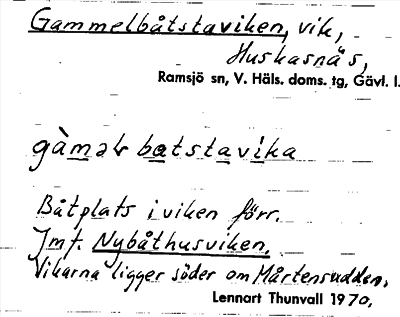 Gammelbåtstaviken, vik,
Huskasnäs,
Ramsjö sn, V. Häls. doms. tg, Gävl. l.
gàməl batstavika
Båtplats i viken förr.
Jmf. Nybåthusviken.
Vikarna ligger söder om Mårtensudden.
Lennart Thunvall 1970.